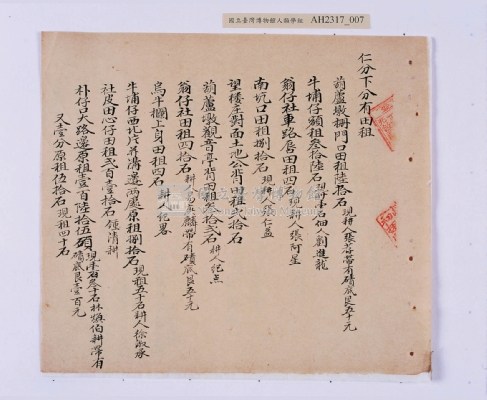 國立臺灣博物館人類學組 AH2317_007
仁分下分有田租
葫蘆墩柵門口田租陸拾石 現耕人張 帶有磧底艮五十元
牛埔仔額租叁拾陸石 佃人劉進龍
翁仔社車路唇田租四石 現耕人張阿星
南坑口田租捌拾石 現耕人張仁益
望樓 對面土地公背田租 拾石
葫蘆墩觀音亭背田租叁拾弍石 耕人
翁仔社田租四拾石 耕 帶有磧底艮五十元
烏牛欄下身田租四石 耕人
牛浦仔西北片并溝邊兩處原租捌拾石 現租五十石耕人徐淑承
社皮田心仔田租弍百壹拾石 鍾清耕
朴仔口大路邊原租壹百陸拾伍碩 現 叁十石林 伯耕帶有磧底艮壹百元
又壹分原租伍拾石 現租四十石